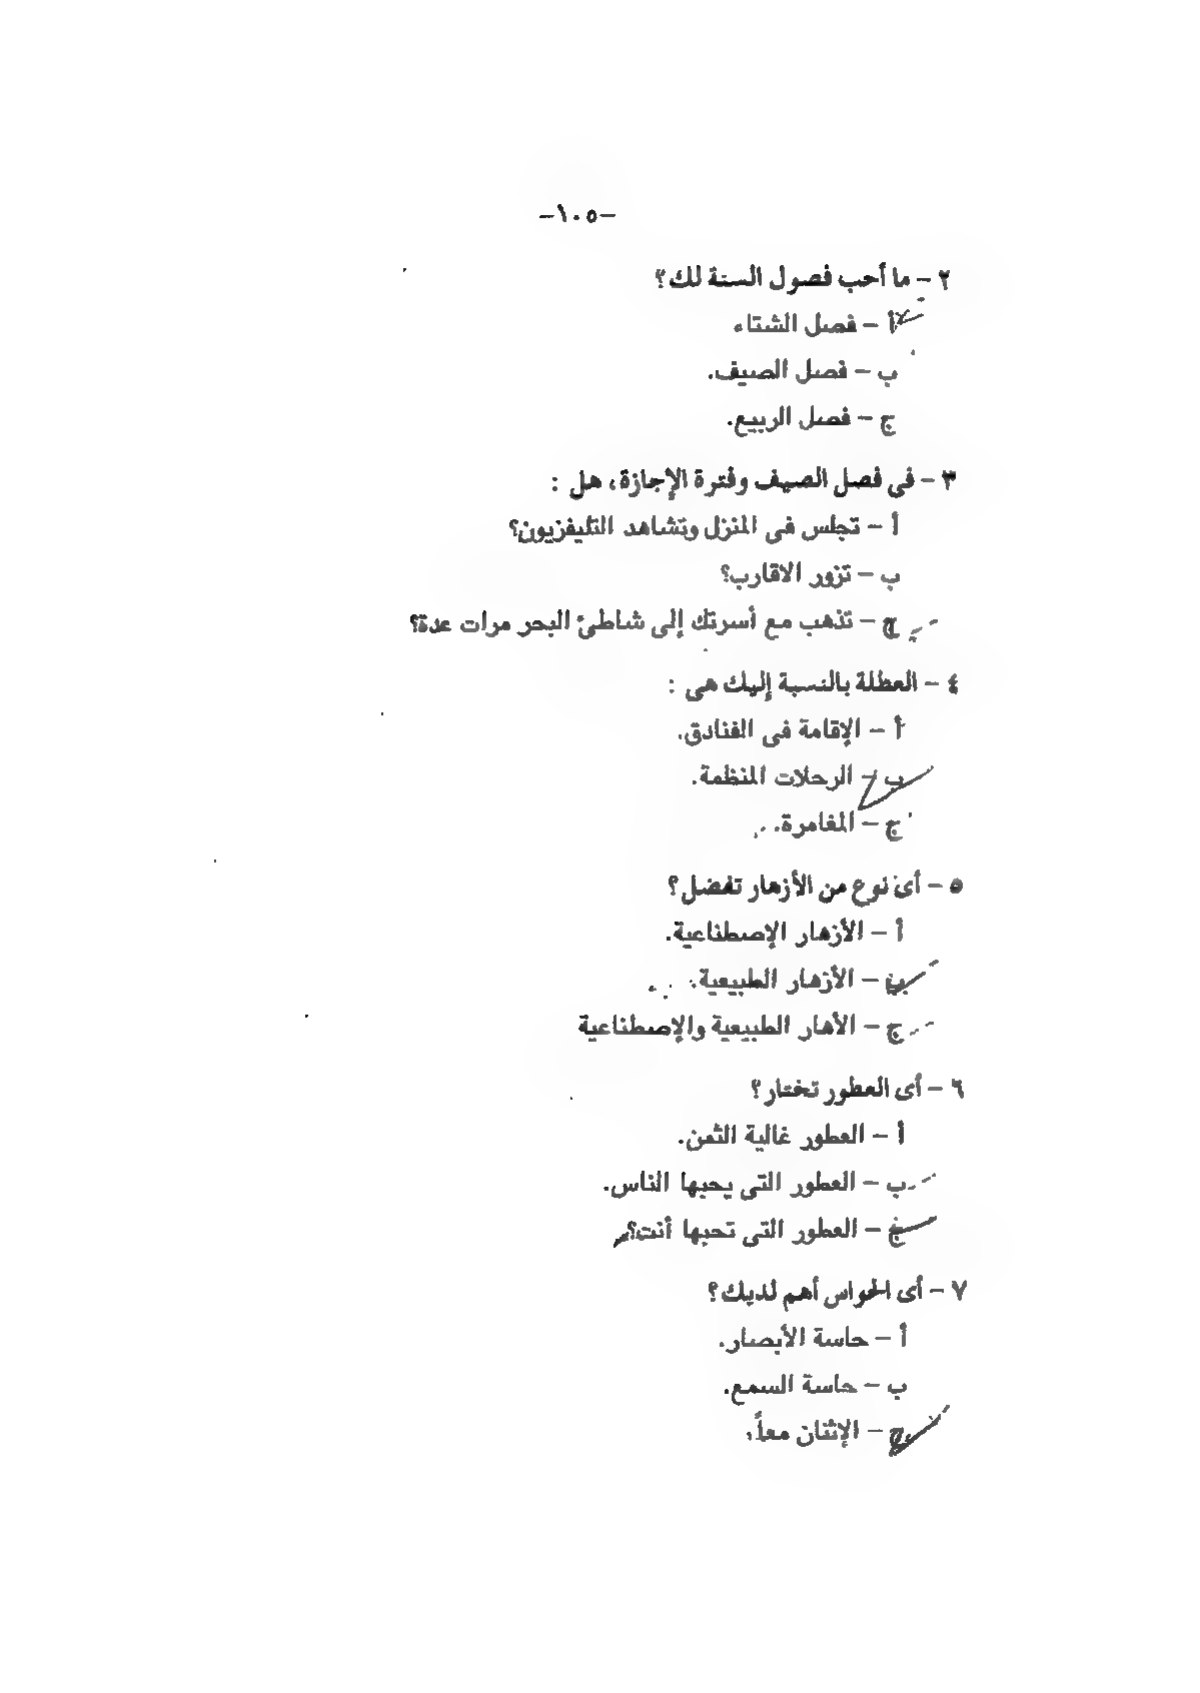 -١٠٥-
٢ - ما أحب فصول السنة لك؟
أ - فصل الشتاء
ب - فصل الصيف.
ج - فصل الربيع.
٣ - فى فصل الصيف وفترة الإجازة، هل :
أ - تجلس فى المنزل وتشاهد التليفزيون؟
ب - تزور الاقارب؟
ج - تذهب مع أسرتك إلى شاطئ البحر مرات عدة؟
٤ - العطلة بالنسبة إليك هى :
أ - الإقامة فى الفنادق.
ب - الرحلات المنظمة.
ج - المغامرة.
٥ - أى نوع من الأزهار تفضل؟
أ - الأزهار الإصطناعية.
ب - الأزهار الطبيعية.
ج - الأهار الطبيعية والإصطناعية
٦ - أى العطور تختار؟
أ - العطور غالية الثمن.
ب - العطور التى يحبها الناس.
ج - العطور التى تحبها أنت؟
٧ - أى الحواس أهم لديك؟
أ - حاسة الأبصار.
ب - حاسة السمع.
ج - الإثنان معاً.